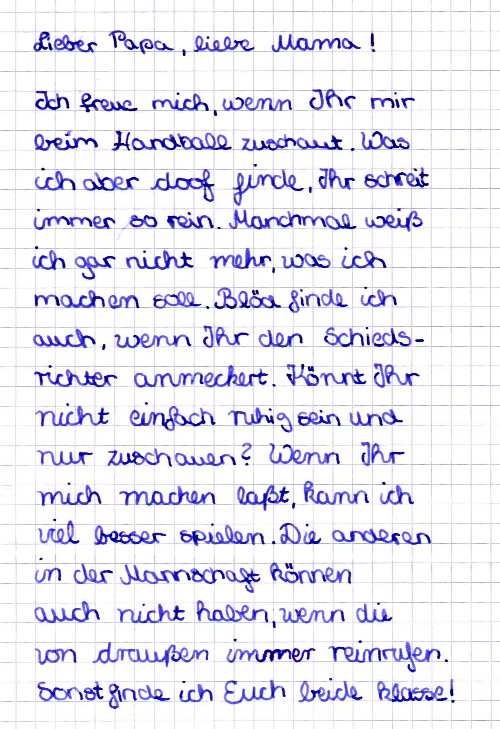 Lieber Papa, liebe Mama!
Ich freue mich, wenn Ihr mir
beim Handball zuschaut. Was
ich aber doof finde, Ihr schreit
immer so rein. Manchmal weiß
ich gar nicht mehr, was ich
machen soll. Blöd finde ich
auch, wenn Ihr den Schieds-
richter anmeckert. Könnt Ihr
nicht einfach ruhig sein und
nur zuschauen? Wenn Ihr
mich machen laßt, kann ich
viel besser spielen. Die anderen
in der Mannschaft können
auch nicht haben, wenn die
von draußen immer reinrufen.
Sonst finde ich Euch beide klasse!